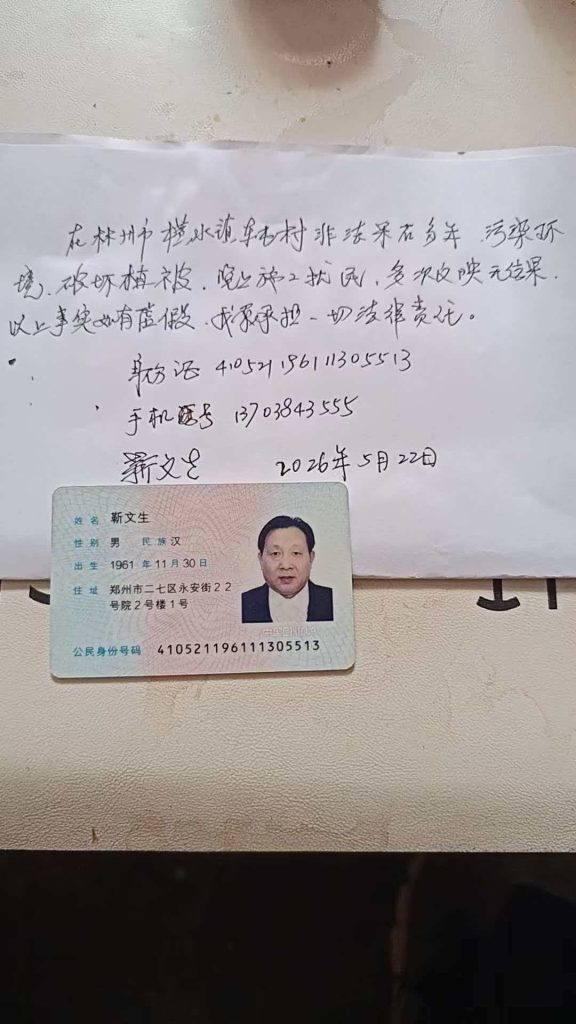 在林州市横水镇车村非法采石多年.污染环
境、破坏植被、晚上施工扰民,多次反映无结果.
以上事实如有虚假.我愿承担一切法律责任。
身份证 410521196111305513
手机号 13703843555
靳文生 2026年5月22日
姓名 靳文生
性别 男 民族 汉
出生 1961 年 11 月 30 日
住址 郑州市二七区永安街22
号院2号楼1号
公民身份号码 410521196111305513